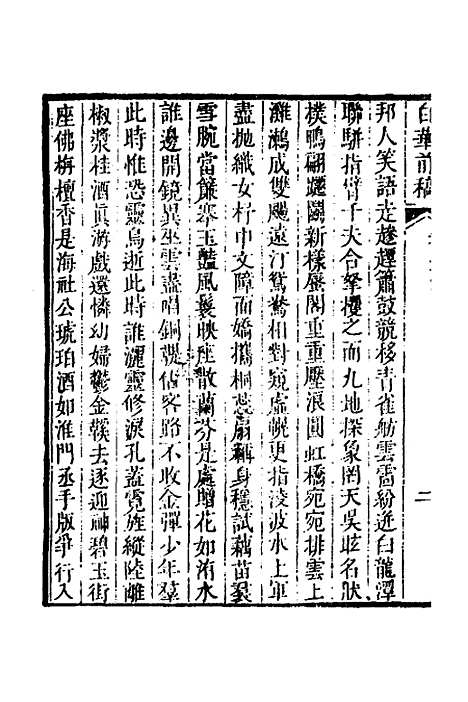 白華前稿
二
邦人笑語走趑趄簫鼓競移青雀舫雲霱紛迎白龍潭
聯騈指臂千夫合拏攫之而九地探象罔天吳眩名狀
樸鴨翩躚鬬新樣層閣重重壓浪圓虹橋宛宛排雲上
灘鵣成雙颺遠汀鴛鴦相對窺虛幌更指淩波水上軍
盡抛織女杼中文障面嬌攜桐蕊扇藕身穩試藕苗裠
雪腕當簾搴玉豔風鬟映座散蘭芬見處贈花如洧水
誰邊開鏡異巫雲盡唱銅鞮估客路不收金彈少年羣
此時惟恐靈烏逝此時誰灑靈修淚孔蓋霓旌縱陸離
椒漿桂酒眞游戲還憐幼婦鬱金鞵去逐迎神碧玉街
座佛栴檀香是海社公琥珀酒如淮門丞手版爭行入